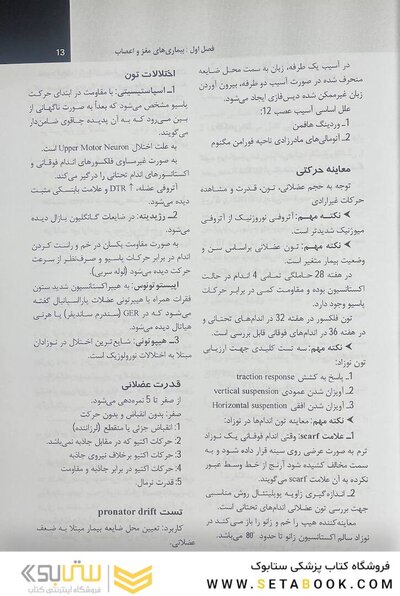 فصل اول : بیماری‌های مغز و اعصاب
13
در آسیب یک طرفه، زبان به سمت محل ضایعه
منحرف شده در صورت آسیب دو طرفه، بیرون آوردن
زبان غیرممکن شده دیس‌فازی ایجاد می‌شود.
علل اساسی آسیب عصب 12:
1ـ وردینگ هافمن
2ـ آنومالی‌های مادرزادی ناحیه فورامن مگنوم
معاینه حرکتی
توجه به حجم عضلانی، تون، قدرت و مشاهده
حرکات غیرارادی
نکته مهم: آتروفی نوروژنیک از آتروفی
میوژنیک شدیدتر است.
نکته مهم: تون عضلانی براساس سن و
وضعیت بیمار متغیر است.
در هفته 28 حاملگی تمامی 4 اندام در حالت
اکستانسیون بوده و مقاومت کمی در برابر حرکات
پاسیو وجود دارد.
تون فلکسور در هفته 32 در اندام‌های تحتانی و
در هفته 36 در اندام‌های فوقانی قابل بررسی است.
نکته مهم: سه تست کلیدی جهت ارزیابی
تون نوزاد:
1ـ پاسخ به کشش traction response
2ـ آویزان شدن عمودی vertical suspension
3ـ آویزان شدن افقی Horizontal suspention
نکته مهم: معاینه تون اندام‌ها در نوزاد:
1ـ علامت scarf: وقتی اندام فوقانی یک نوزاد
ترم به صورت عرضی روی سینه قرار داده شود و به
سمت مخالف کشیده شود آرنج از خط وسط عبور
نکرده به آن علامت scarf می‌گویند.
2ـ اندازه‌گیری زاویه پوپلیتئال روش مناسبی
جهت بررسی تون عضلانی اندام‌های تحتانی است.
معاینه‌کننده هیپ را خم و زانو را باز می‌کند در
نوزاد سالم اکستانسیون زانو تا حدود 80° می‌باشد.
اختلالات تون
1ـ اسپاستیسیتی: با مقاومت در ابتدای حرکت
پاسیو مشخص می‌شود که بعداً به صورت ناگهانی از
بین می‌رود که به آن پدیده چاقوی ضامن‌دار
می‌گویند.
به علت اختلال Upper Motor Neuron است.
به صورت غیرمساوی فلکسورهای اندام فوقانی و
اکستانسورهای اندام تحتانی را درگیر می‌کند.
آتروفی عضله، ↑ DTR و علامت بابنسکی مثبت
دیده می‌شود.
2ـ رژیدیته: در ضایعات گانگلیون بازال دیده
می‌شود.
به صورت مقاومت یکسان در خم و راست کردن
اندام در برابر حرکات پاسیو و صرف‌نظر از سرعت
حرکت دیده می‌شود (لوله سربی)
اپیستوتونوس: به هیپراکستانسیون شدید ستون
فقرات همراه با هیپرتونی عضلات پاراسپاینال گفته
می‌شود که در GER (سندرم ساندیفر) یا هرنی
هیاتال دیده می‌شود.
3ـ هیپوتونی: شایع‌ترین اختلال در نوزادان
مبتلا به اختلالات نورولوژیک است.
قدرت عضلانی
از صفر تا 5 نمره‌دهی می‌شود.
صفر: بدون انقباض و بدون حرکت
1: انقباض جزئی یا منقطع (لرزاننده)
2: حرکات اکتیو که در مقابل جاذبه نمی‌باشد.
3: حرکات اکتیو برخلاف نیروی جاذبه
4: حرکات اکتیو در برابر جاذبه و مقاومت
5: قدرت نرمال
تست pronator drift
کاربرد: تعیین محل ضایعه بیمار مبتلا به ضعف
عضلانی.
ستابوک
فروشگاه اینترنتی کتاب
فروشگاه کتاب پزشکی ستابوک
WWW.SETABOOK.COM